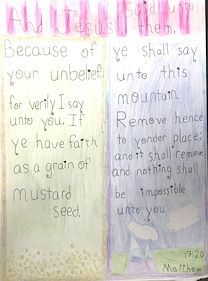 And Jesus said unto them.
Because of
your unbelief:
for verily I say
unto you. If
ye have faith
as a grain of
mustard
seed.
ye shall say
unto this
mountain
Remove hence
to yonder place;
and it shall remove
and nothing shall
be impossible
unto you
17:20
Matthew